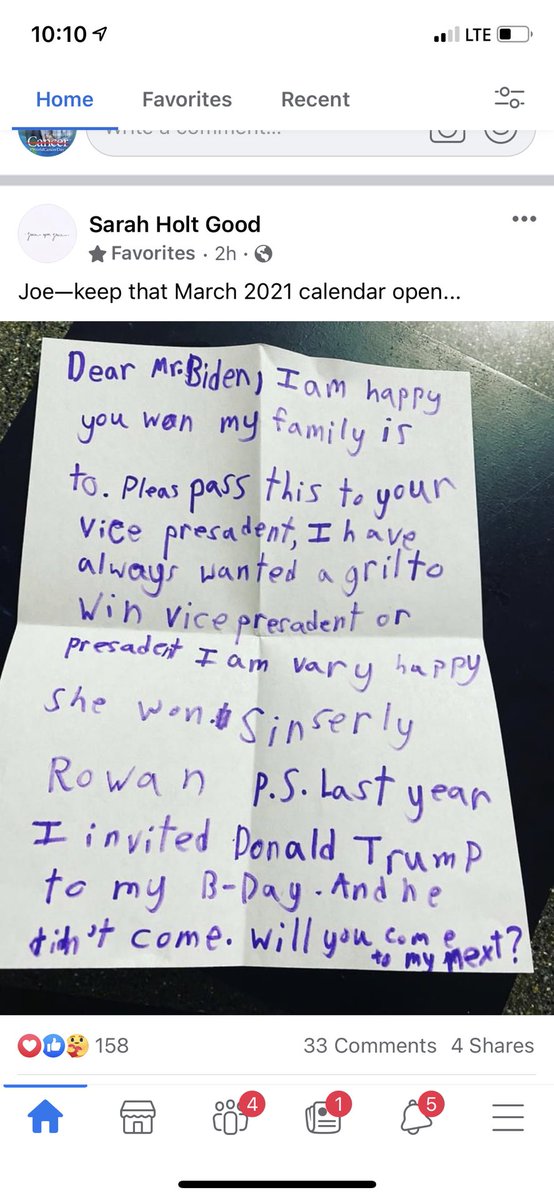 10:10
LTE
Home Favorites Recent
Cancer
Write a comment...
Sarah Holt Good
Favorites · 2h ·
Joe—keep that March 2021 calendar open...
Dear Mr. Biden, I am happy
you won my family is
to. Pleas pass this to your
vice presadent, I have
always wanted a gril to
win vice presadent or
presadent I am vary happy
she won. Sinserly
Rowan P.S. Last year
I invited Donald Trump
to my B-Day. And he
didn't come. Will you come
to my next?
158 33 Comments 4 Shares
4 1 5